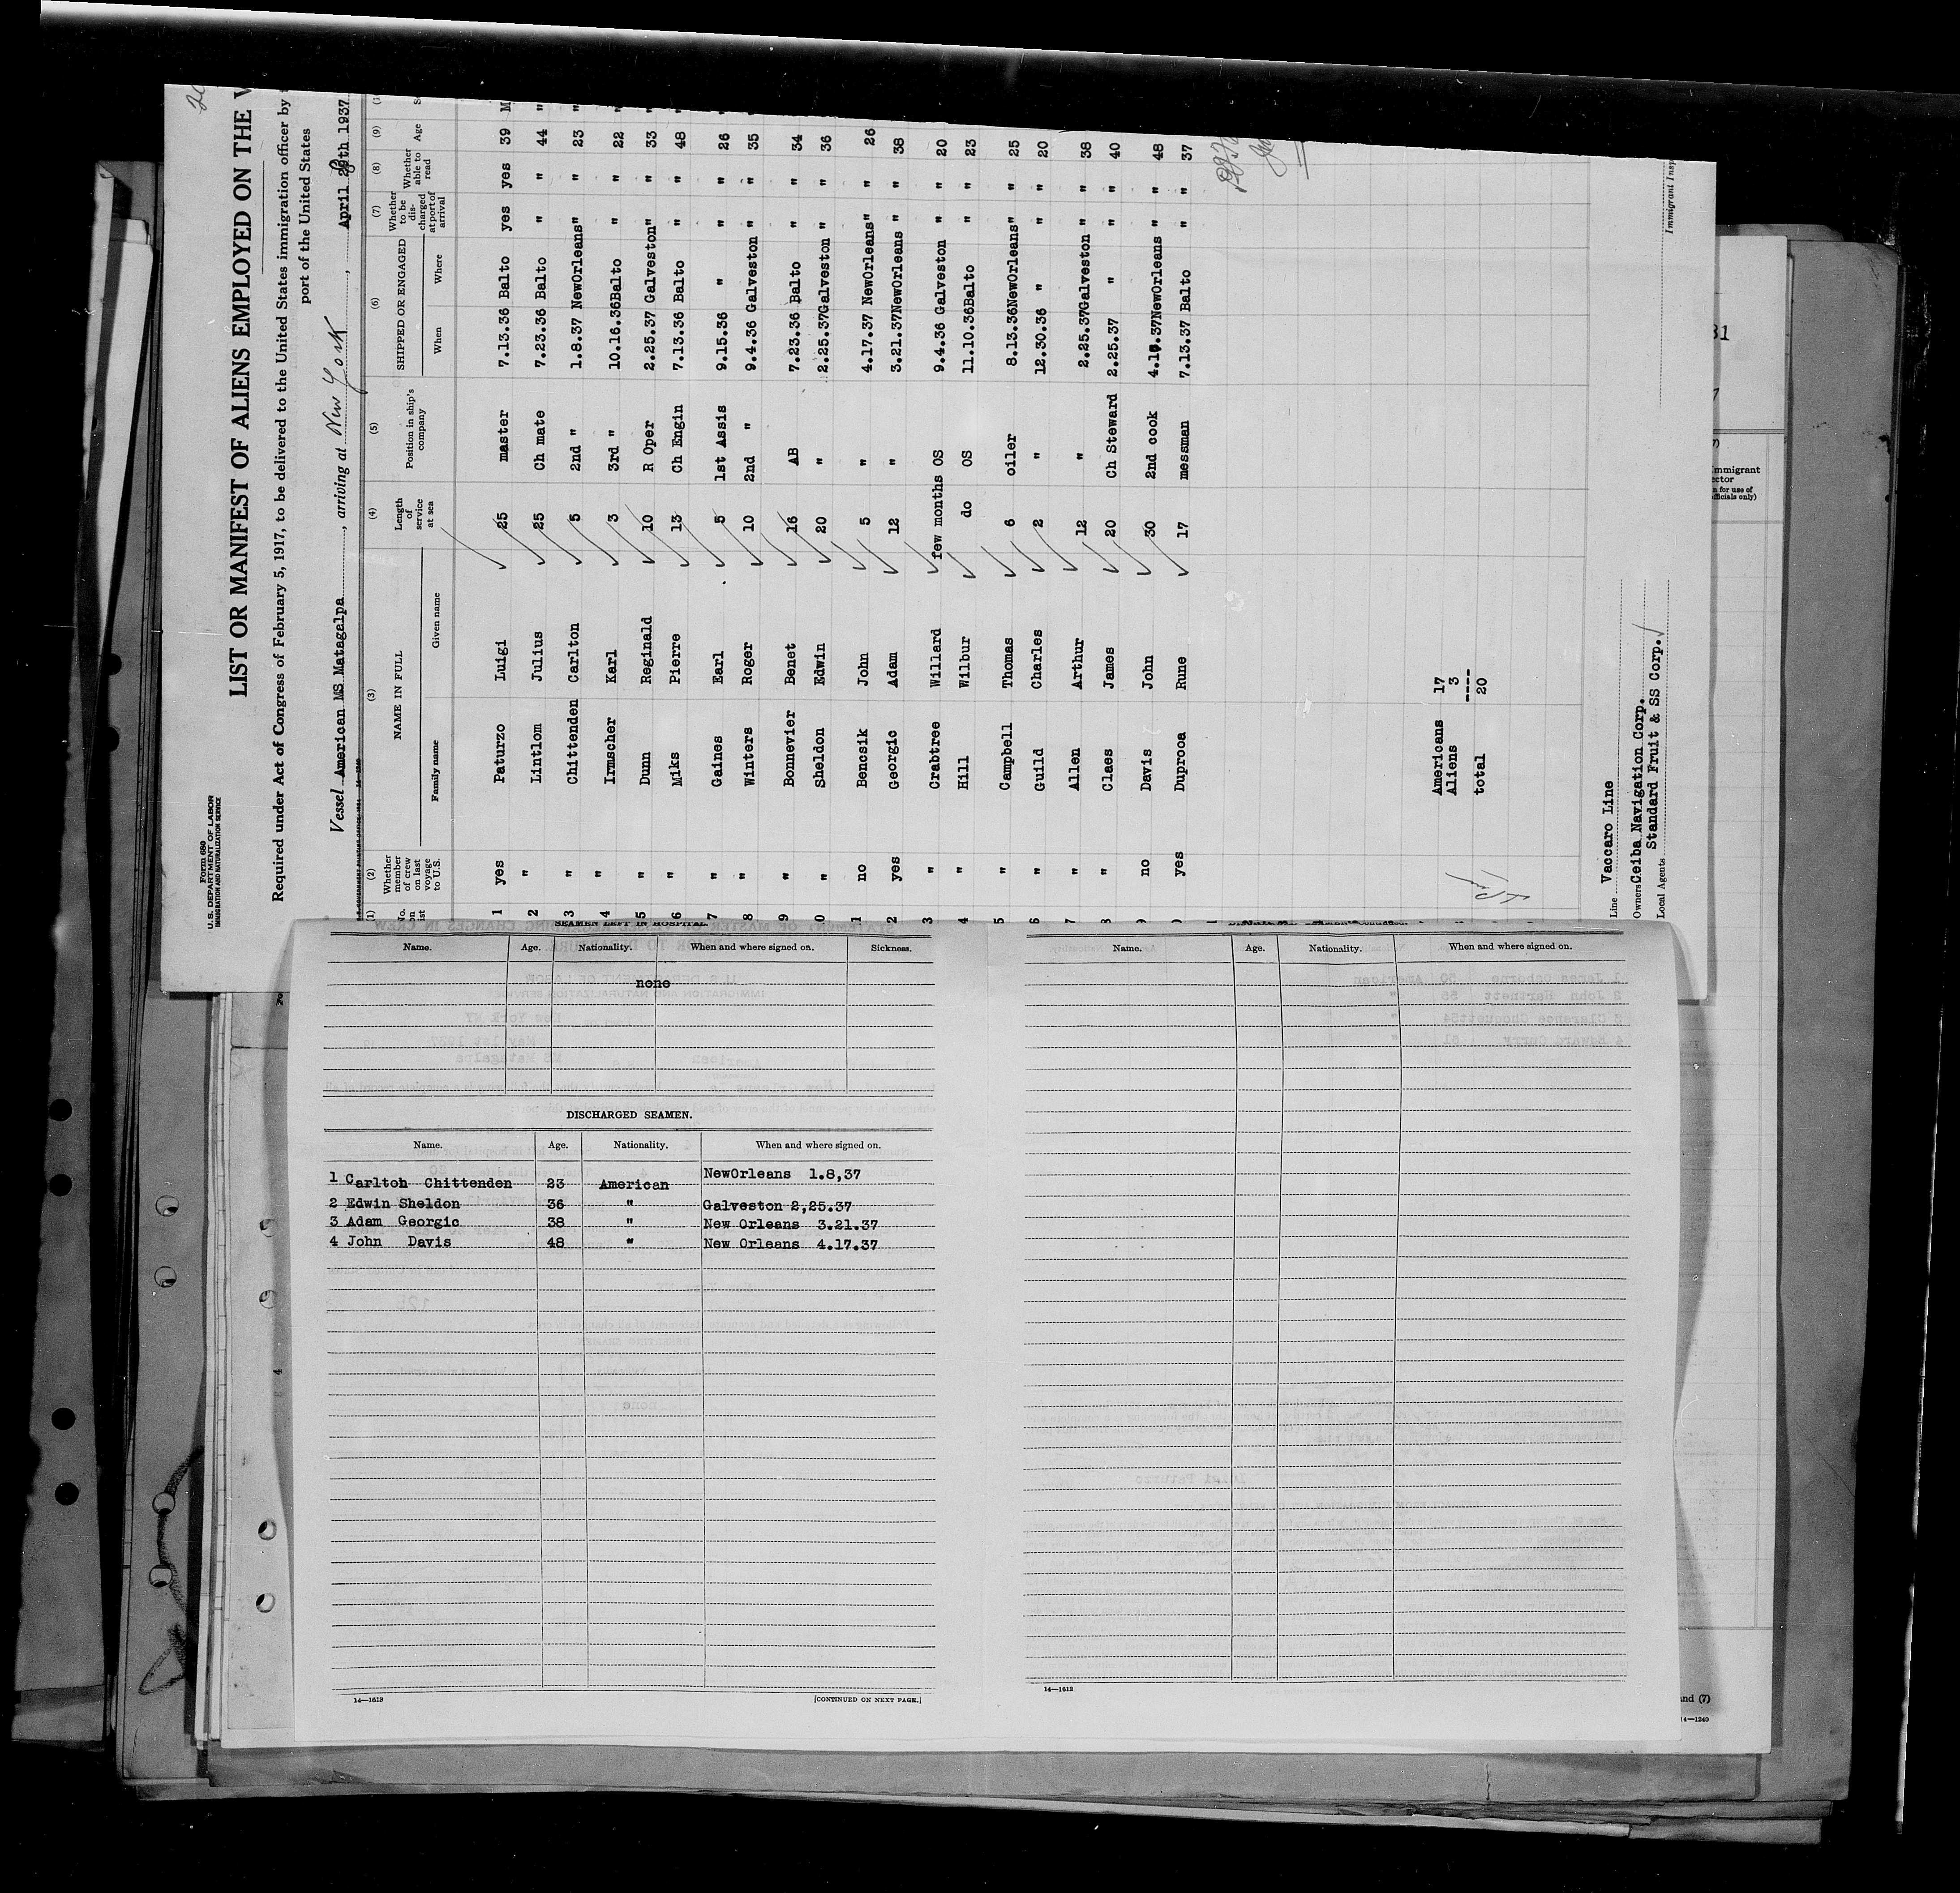 Form 680
U.S. DEPARTMENT OF LABOR
IMMIGRATION AND NATURALIZATION SERVICE
LIST OR MANIFEST OF ALIENS EMPLOYED ON THE
Required under Act of Congress of February 5, 1917, to be delivered to the United States immigration officer by
port of the United States
Vessel American MS Matagalpa, arriving at New York, April 1937
(1) (2) (3) (4) (5) (6) (7) (8) (9)
No. on list Whether member of crew on last voyage to U.S. NAME IN FULL Family name Given name Length of service at sea Position in ship's company SHIPPED OR ENGAGED When Where Whether to be discharged at port of arrival Whether able to read Age
1 yes Paturzo Luigi 25 master 7.13.36 Balto yes yes 39 M
2 " Lintlom Julius 25 Ch mate 7.23.36 Balto " " 44 "
3 " Chittenden Carlton 5 2nd " 1.8.37 NewOrleans " " 23 "
4 " Irmscher Karl 3 3rd " 10.16.36 Balto " " 22 "
5 " Dunn Reginald 10 R Oper 2.25.37 Galveston " " 33 "
6 " Miks Pierre 13 Ch Engin 7.13.36 Balto " " 48 "
7 " Gaines Earl 5 1st Assis 9.15.36 " " " 26
8 " Winters Roger 10 2nd " 9.4.36 Galveston " " 35
9 " Bonnevier Benet 16 AB 7.23.36 Balto " " 34
0 " Sheldon Edwin 20 " 2.25.37 Galveston " " 36
1 no Bencsik John 5 " 4.17.37 NewOrleans " " 26
2 yes Georgic Adam 12 " 3.21.37 NewOrleans " " 38
3 " Crabtree Willard few months OS 9.4.36 Galveston " " 20
4 " Hill Wilbur do OS 11.10.36 Balto " " 23
5 " Campbell Thomas 6 oiler 8.13.36 NewOrleans " " 25
6 " Guild Charles 2 " 12.30.36 " " " 20
7 " Allen Arthur 12 " 2.25.37 Galveston " " 38
8 " Claes James 20 Ch Steward 2.25.37 " " " 40
9 no Davis John 30 2nd cook 4.17.37 NewOrleans " " 48
0 yes Duprooa Rune 17 messman 7.13.37 Balto " " 37
Americans 17
Aliens 3
----
total 20
Line Vaccaro Line
Owners Ceiba Navigation Corp.
Local Agents Standard Fruit & SS Corp.
Immigrant Insp
SEAMEN LEFT IN HOSPITAL.
Name. Age. Nationality. When and where signed on. Sickness.
none
DISCHARGED SEAMEN.
Name. Age. Nationality. When and where signed on.
1 Carlton Chittenden 23 American NewOrleans 1.8,37
2 Edwin Sheldon 36 " Galveston 2,25.37
3 Adam Georgic 38 " New Orleans 3.21.37
4 John Davis 48 " New Orleans 4.17.37
14—1613 [CONTINUED ON NEXT PAGE.]
Name. Age. Nationality. When and where signed on.
14—1613
31
mmigrant
ector
n for use of
officials only)
and (7)
14—1240